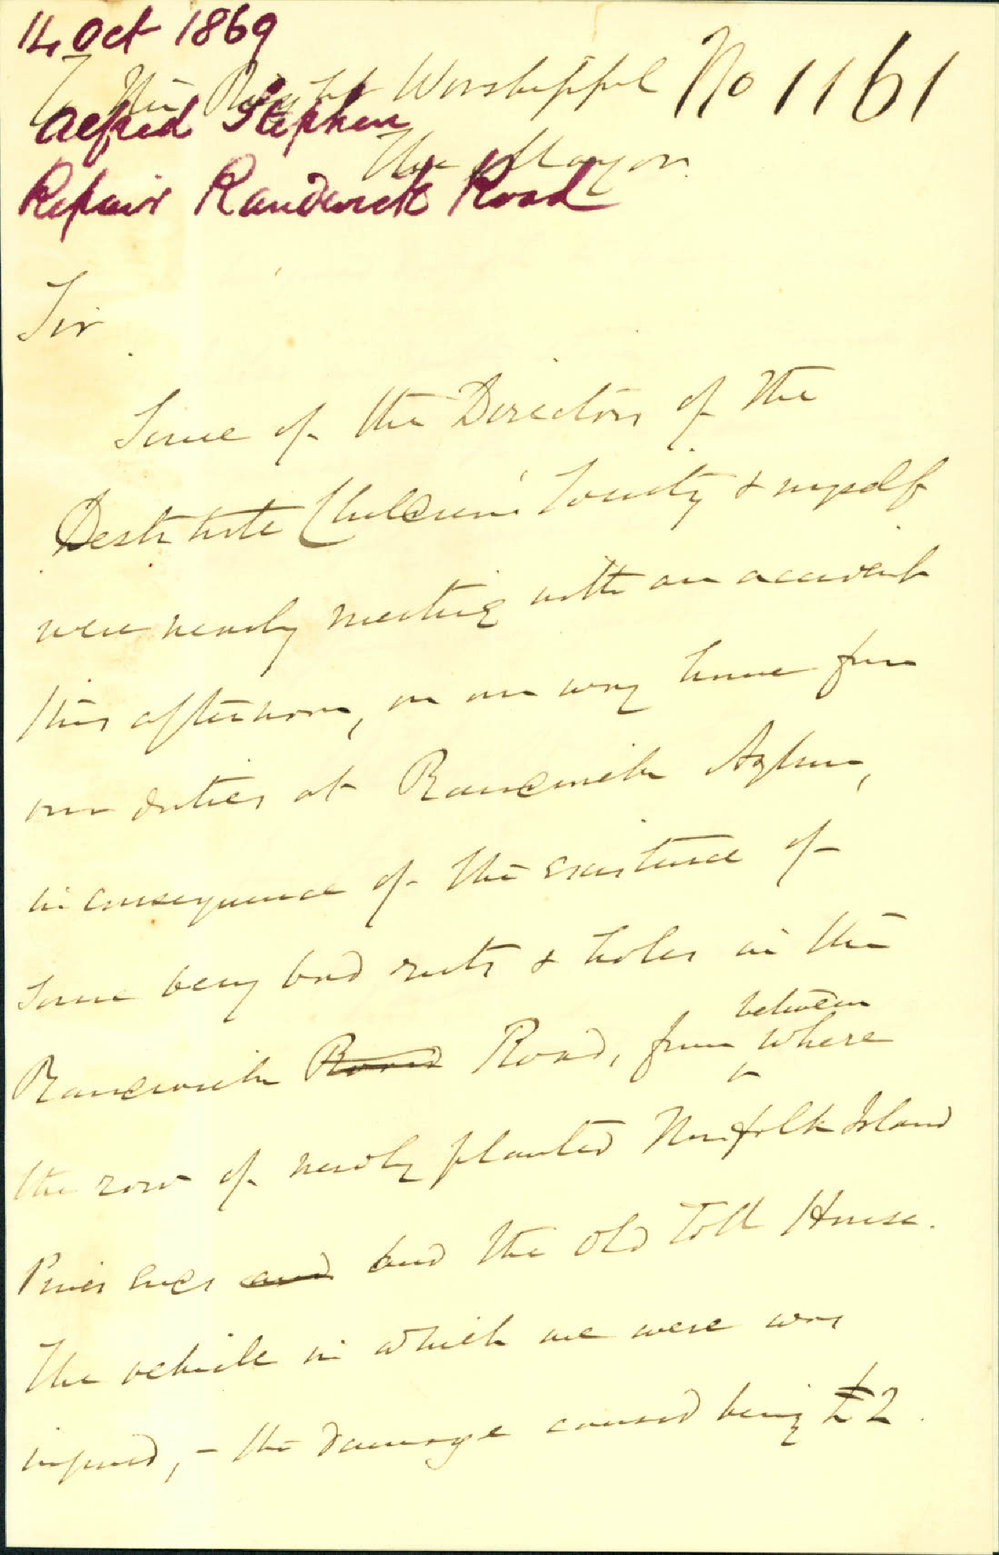 14 Oct 1869
To The Right Worshipful
No 1161
Alfred Stephen
The Mayor
Repair Randwick Road
Sir
Some of the Directors of the
Destitute Children's Society & myself
were nearly meeting with an accident
this afternoon, on our way home from
our duties at Randwick Asylum,
in consequence of the existence of
some very bad ruts & holes in the
Randwick Road Road, from between where
the row of newly planted Norfolk Island
Pines ends and and the Old Toll House.
The vehicle in which we were was
injured, - the damage caused being £2.